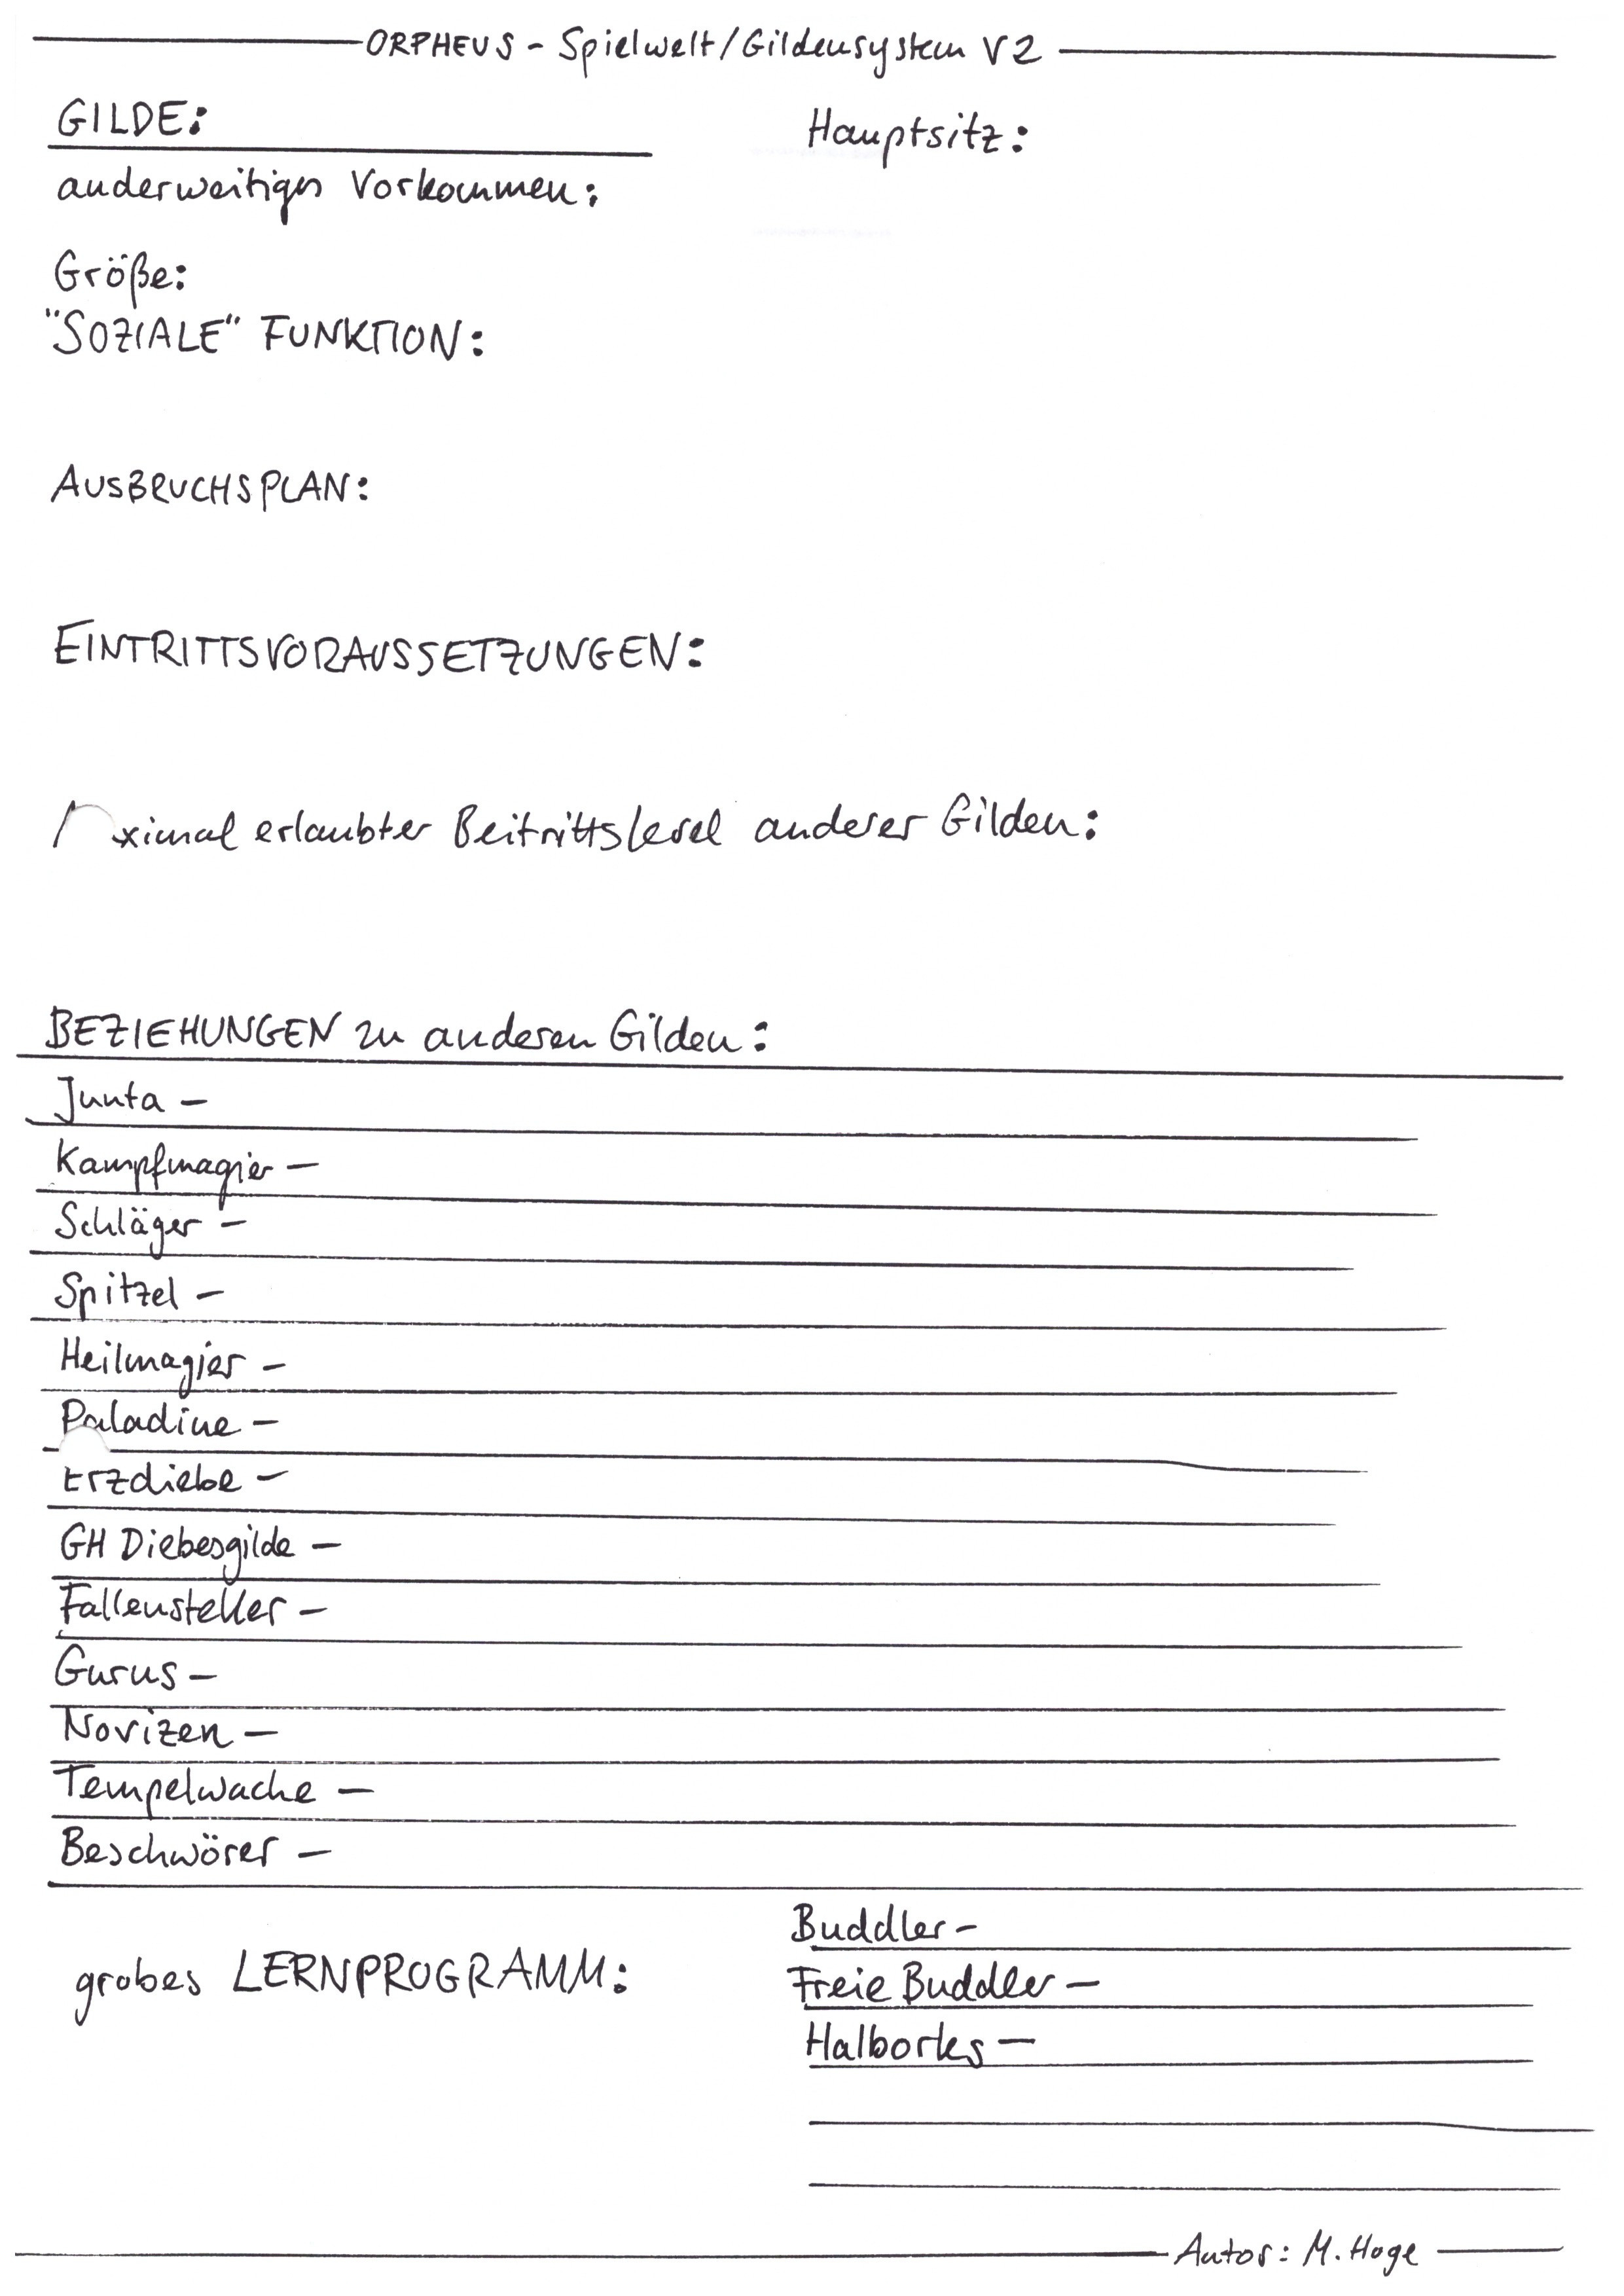 ORPHEUS - Spielwelt/Gildensystem V2
GILDE:
Hauptsitz:
anderweitiges Vorkommen:
Größe:
"SOZIALE" FUNKTION:
AUSBRUCHSPLAN:
EINTRITTSVORAUSSETZUNGEN:
ximal erlaubter Beitrittslevel anderer Gilden:
BEZIEHUNGEN zu anderen Gilden:
Junta -
Kampfmagier -
Schläger -
Spitzel -
Heilmagier -
Paladine -
Erzdiebe -
GH Diebesgilde -
Fallensteller -
Gurus -
Novizen -
Tempelwache -
Beschwörer -
Buddler -
Freie Buddler -
Halborks -
grobes LERNPROGRAMM:
Autor: M. Hoge